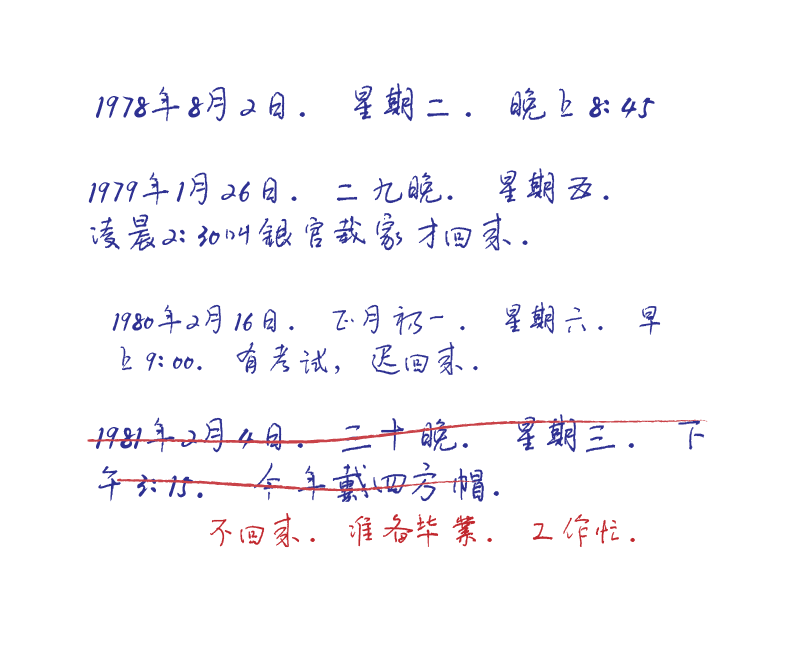 1978年8月2日. 星期二. 晚上8:45
1979年1月26日. 二九晚. 星期五.
凌晨2:30叫銀官載家才回来.
1980年2月16日. 正月初一. 星期六. 早
上9:00. 有考试, 迟回来.
1981年2月4日. 三十晚. 星期三. 下
午3:15. 今年戴四方帽.
不回来. 准备毕業. 工作忙.